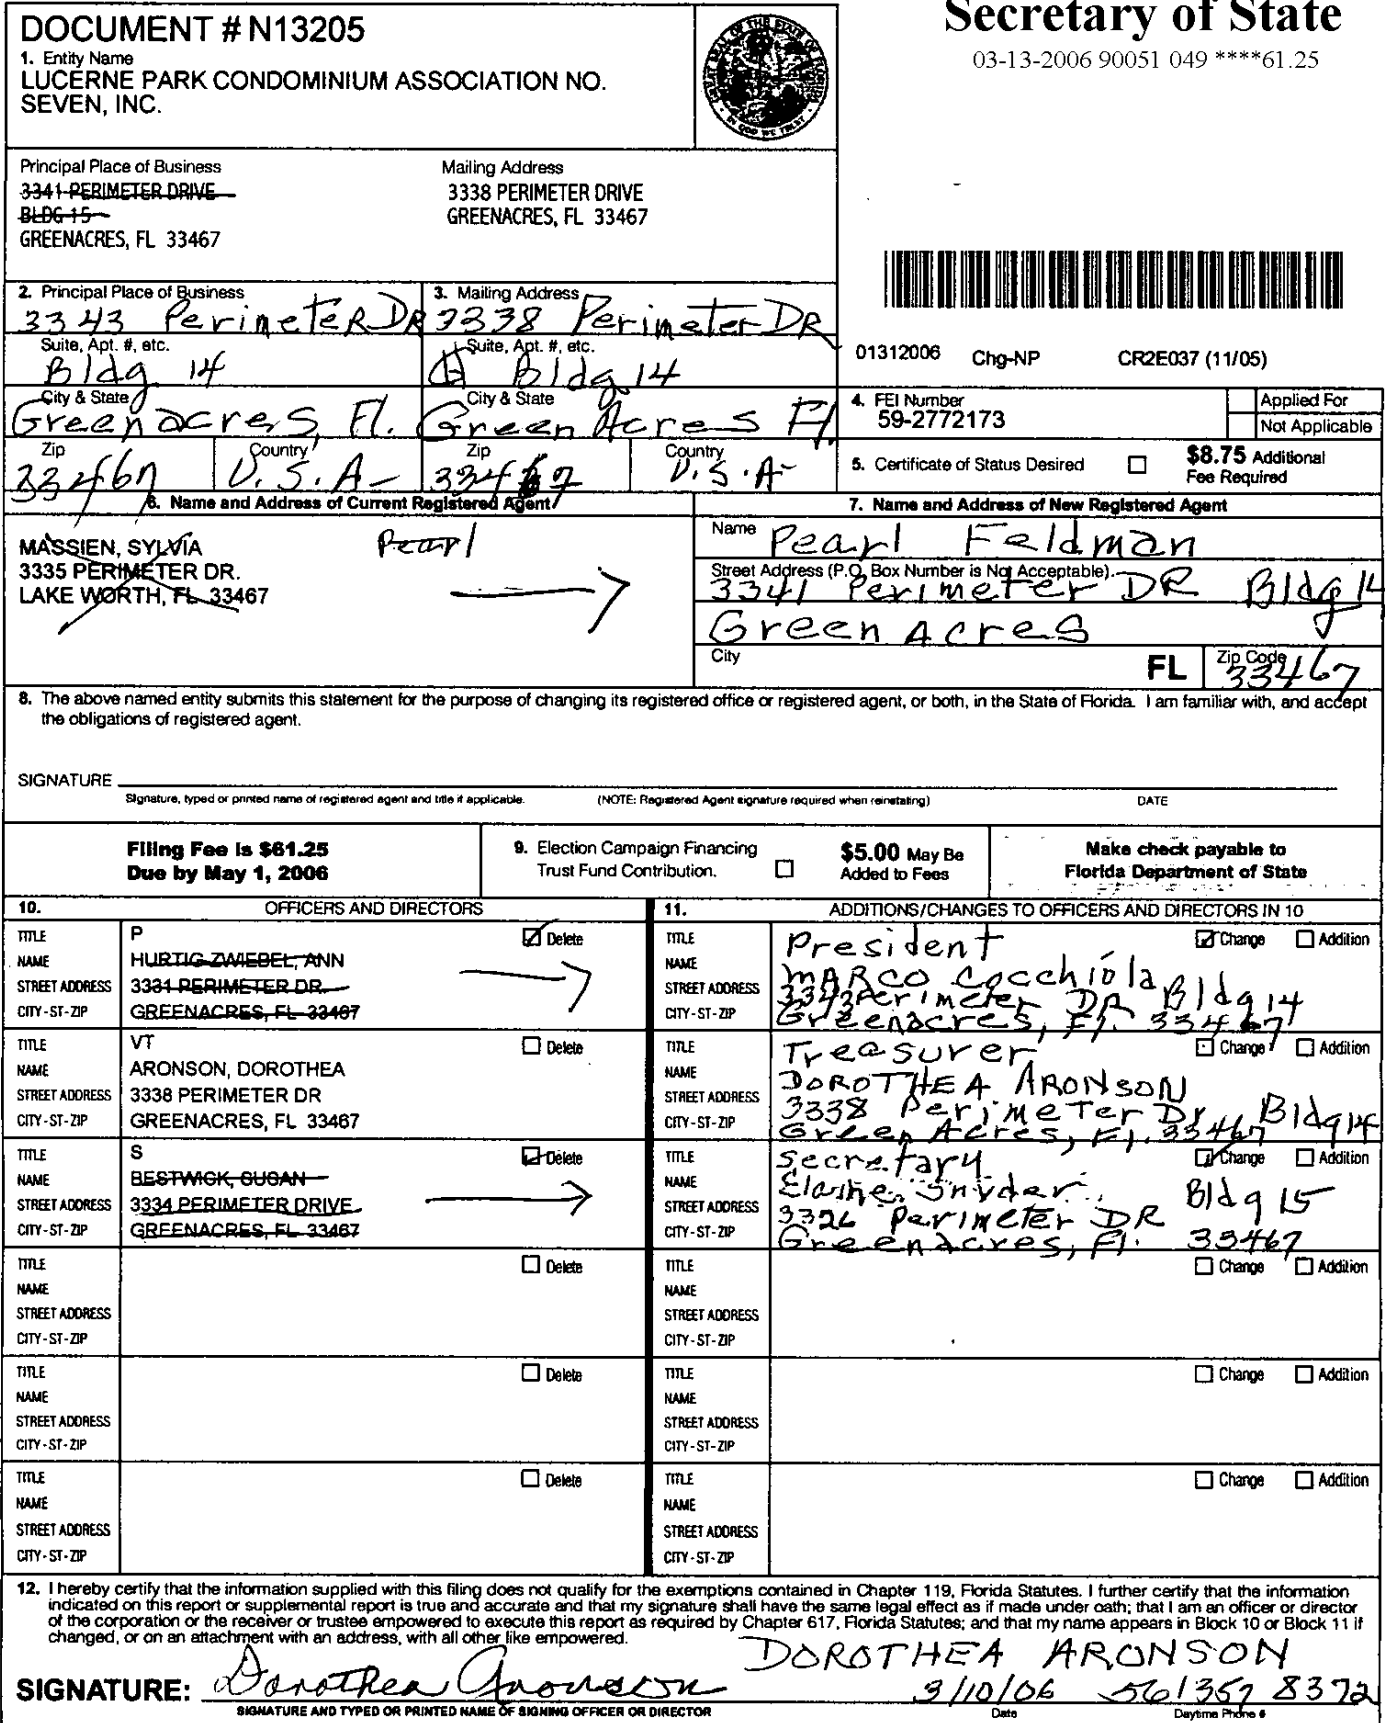 Secretary of State
03-13-2006 90051 049 ****61.25
DOCUMENT # N13205
1. Entity Name
LUCERNE PARK CONDOMINIUM ASSOCIATION NO.
SEVEN, INC.
Principal Place of Business
3341 PERIMETER DRIVE
BLDG 15
GREENACRES, FL 33467
Mailing Address
3338 PERIMETER DRIVE
GREENACRES, FL 33467
2. Principal Place of Business
3343 Perimeter DR
Suite, Apt. #, etc.
Bldg 14
City & State
Greenacres, Fl.
Zip
33467
Country
U.S.A-
3. Mailing Address
3338 Perimeter DR
Suite, Apt. #, etc.
Bldg 14
City & State
Green Acres Fl
Zip
33467
Country
U.S.A-
01312006 Chg-NP CR2E037 (11/05)
4. FEI Number
59-2772173
Applied For
Not Applicable
5. Certificate of Status Desired
$8.75 Additional
Fee Required
6. Name and Address of Current Registered Agent
MASSIEN, SYLVIA
3335 PERIMETER DR.
LAKE WORTH, FL 33467
Pearl
7. Name and Address of New Registered Agent
Name
Pearl Feldman
Street Address (P.O. Box Number is Not Acceptable)
3341 Perimeter DR Bldg 14
Green Acres
City
FL
Zip Code
33467
8. The above named entity submits this statement for the purpose of changing its registered office or registered agent, or both, in the State of Florida. I am familiar with, and accept
the obligations of registered agent.
SIGNATURE
Signature, typed or printed name of registered agent and title if applicable.
(NOTE: Registered Agent signature required when reinstating)
DATE
Filing Fee is $61.25
Due by May 1, 2006
9. Election Campaign Financing
Trust Fund Contribution.
$5.00 May Be
Added to Fees
Make check payable to
Florida Department of State
10. OFFICERS AND DIRECTORS
11. ADDITIONS/CHANGES TO OFFICERS AND DIRECTORS IN 10
TITLE P Delete
NAME HURTIG-ZWIEBEL, ANN
STREET ADDRESS 3331 PERIMETER DR.
CITY-ST-ZIP GREENACRES, FL 33467
TITLE President Change Addition
NAME MARCO Cocchiola
STREET ADDRESS 3343 Perimeter DR Bldg 14
CITY-ST-ZIP Greenacres, Fl. 33467
TITLE VT Delete
NAME ARONSON, DOROTHEA
STREET ADDRESS 3338 PERIMETER DR
CITY-ST-ZIP GREENACRES, FL 33467
TITLE Treasurer Change Addition
NAME DOROTHEA ARONSON
STREET ADDRESS 3338 Perimeter Dr Bldg 14
CITY-ST-ZIP Green Acres, Fl. 33467
TITLE S Delete
NAME BESTWICK, SUSAN
STREET ADDRESS 3334 PERIMETER DRIVE
CITY-ST-ZIP GREENACRES, FL 33467
TITLE Secretary Change Addition
NAME Elaine Snyder Bldg 15
STREET ADDRESS 3326 Perimeter DR
CITY-ST-ZIP Greenacres, Fl. 33467
TITLE Delete
NAME
STREET ADDRESS
CITY-ST-ZIP
TITLE Change Addition
NAME
STREET ADDRESS
CITY-ST-ZIP
TITLE Delete
NAME
STREET ADDRESS
CITY-ST-ZIP
TITLE Change Addition
NAME
STREET ADDRESS
CITY-ST-ZIP
TITLE Delete
NAME
STREET ADDRESS
CITY-ST-ZIP
TITLE Change Addition
NAME
STREET ADDRESS
CITY-ST-ZIP
12. I hereby certify that the information supplied with this filing does not qualify for the exemptions contained in Chapter 119, Florida Statutes. I further certify that the information
indicated on this report or supplemental report is true and accurate and that my signature shall have the same legal effect as if made under oath; that I am an officer or director
of the corporation or the receiver or trustee empowered to execute this report as required by Chapter 617, Florida Statutes; and that my name appears in Block 10 or Block 11 if
changed, or on an attachment with an address, with all other like empowered.
DOROTHEA ARONSON
SIGNATURE: Dorothea Aronson 3/10/06 561 357 8372
SIGNATURE AND TYPED OR PRINTED NAME OF SIGNING OFFICER OR DIRECTOR
Date
Daytime Phone #